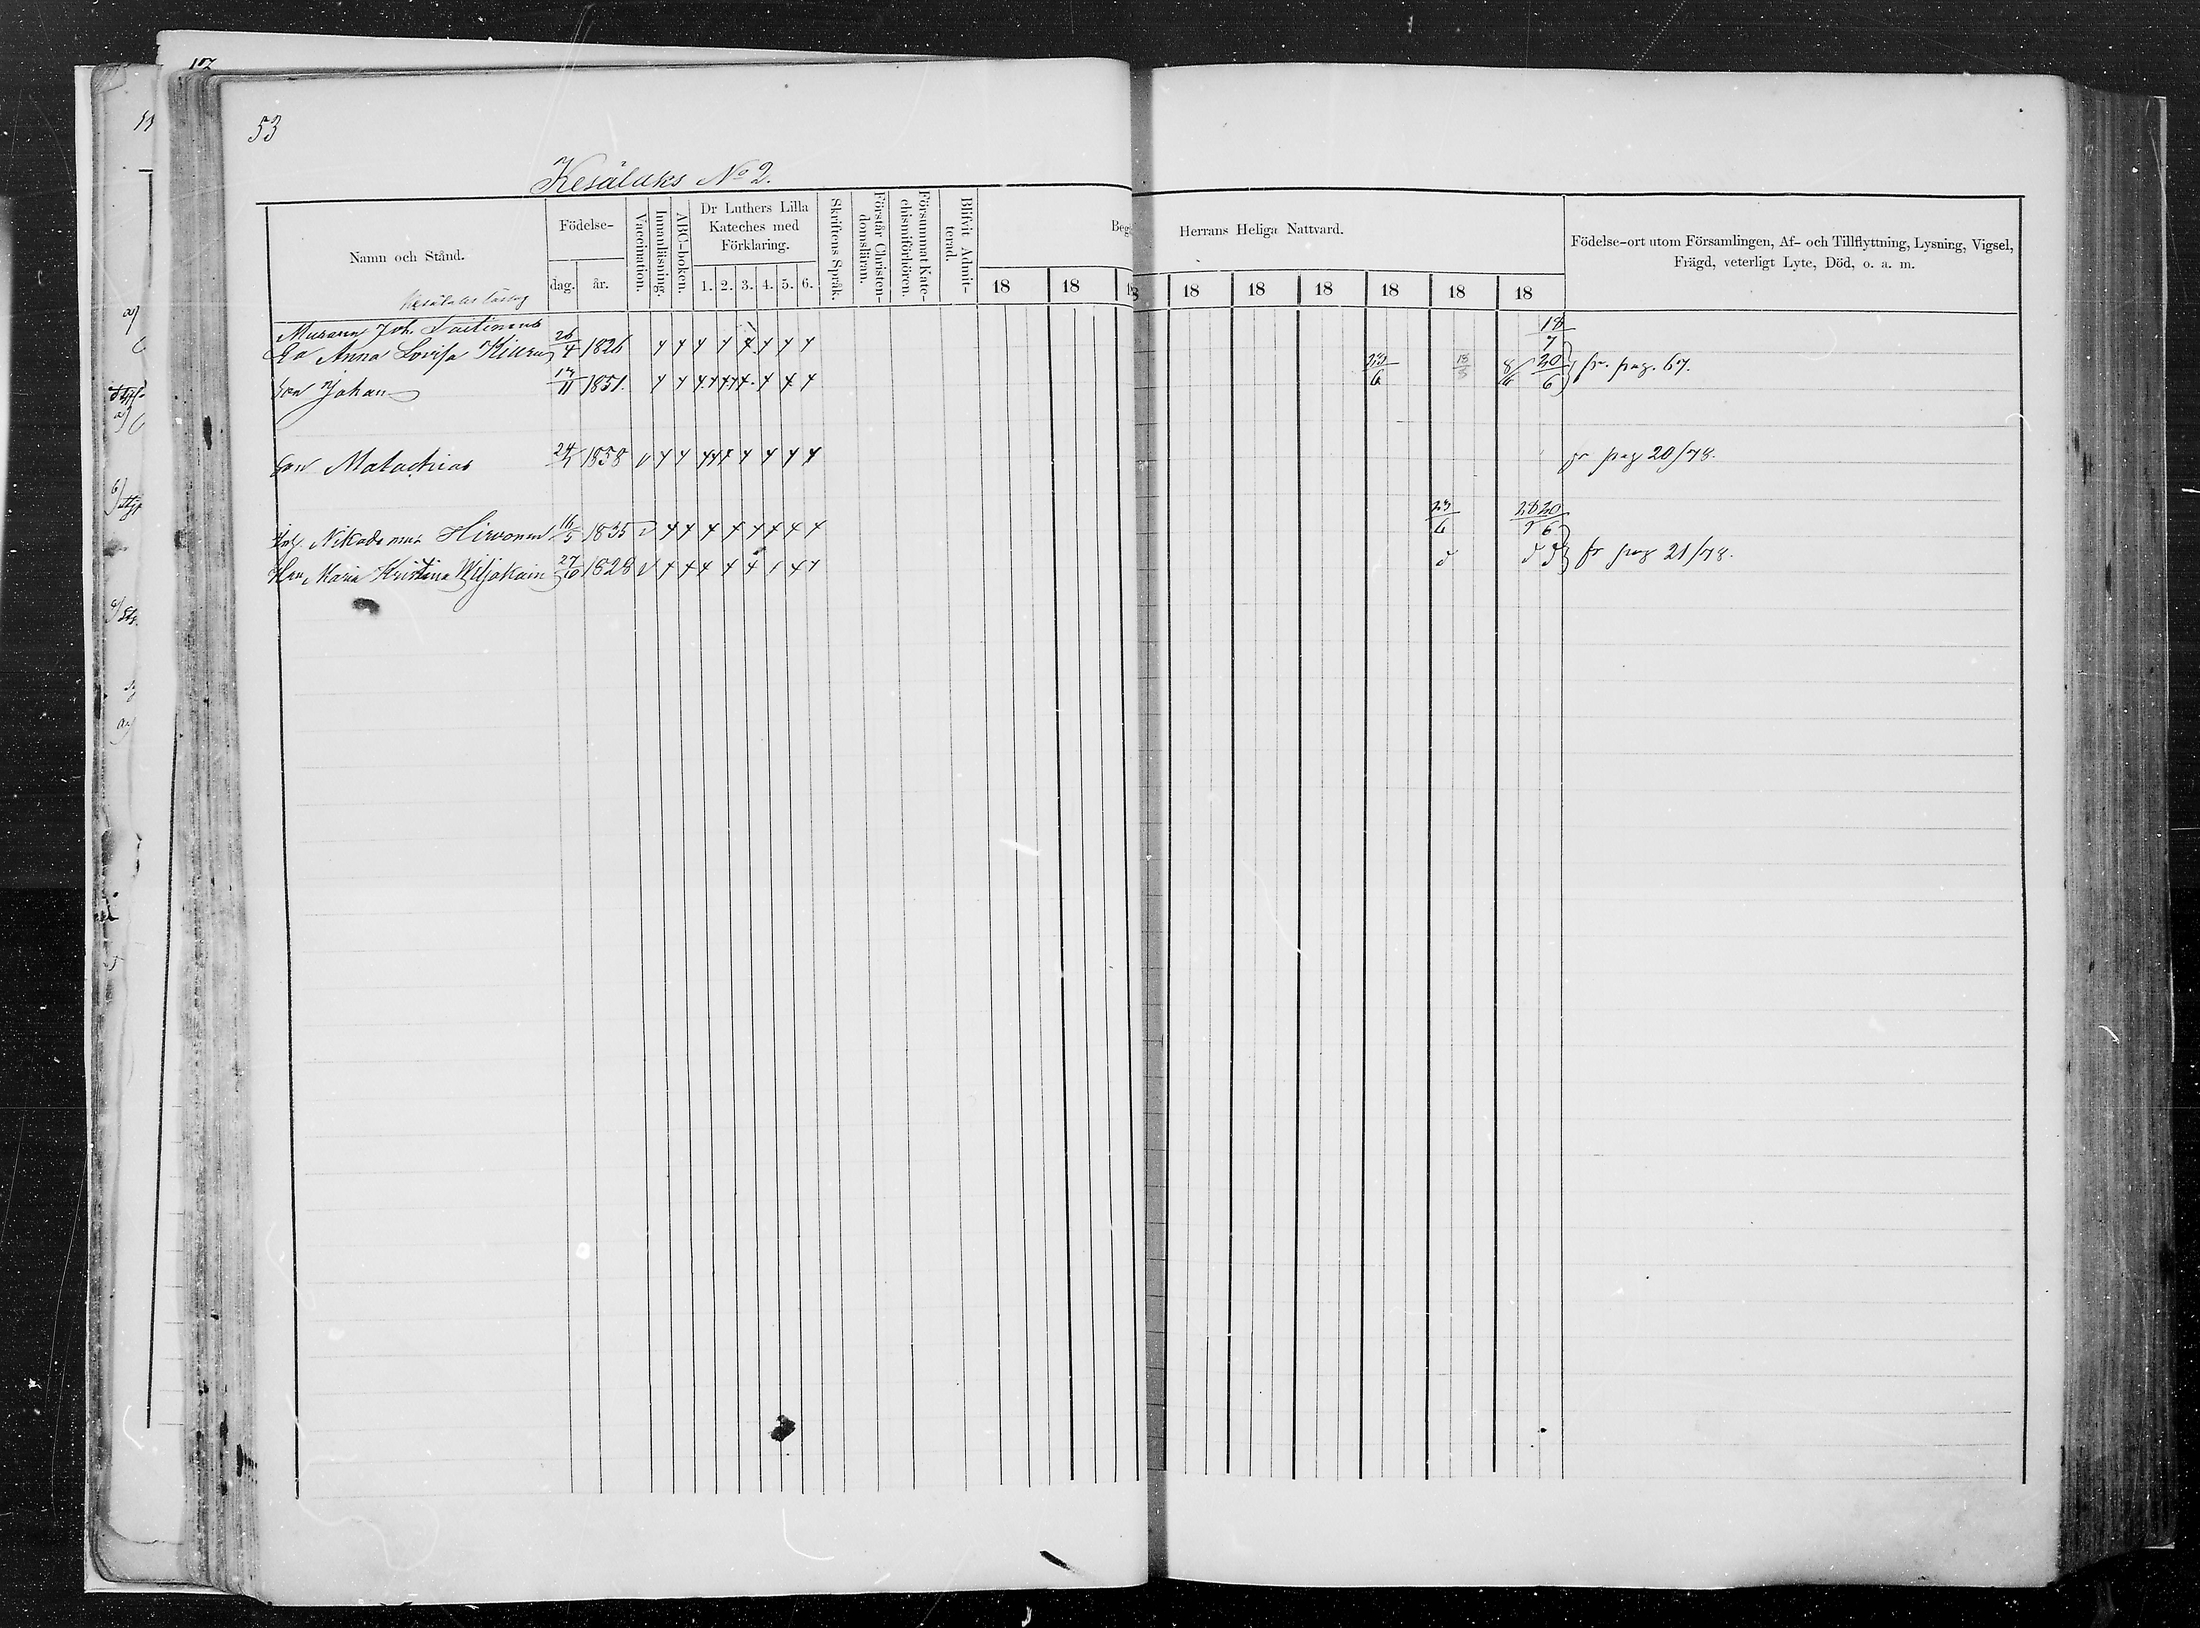 53
Kesälaks No 2.
Namn och Stånd.
Födelse-
dag.
år.
Vaccination.
Innanläsning.
ABC-boken.
Dr Luthers Lilla
Kateches med
Förklaring.
1. 2. 3. 4. 5. 6.
Skriftens Språk.
Förstår Christen-
domsläran.
Försummat Kate-
chismiförhören.
Blifvit Admit-
terad.
Beg
Herrans Heliga Nattvard.
18 18 18 18 18 18 18 18 18
Födelse-ort utom Församlingen, Af- och Tillflyttning, Lysning, Vigsel,
Frägd, veterligt Lyte, Död, o. a. m.
Joh.
Anna Lovisa 26/4 1826
18/7
Son Johan 13/11 1851. 23/6 13/5 8/6 20/6 fr. pag. 67.
Son Malachias 24/1 1858 fr pag 20/78.
Nikodemus Hirvonen 16/5 1835 23/6 28/7 20/6
Maria Kristina Wiljakain 27/10 1828 fr pag 21/78.